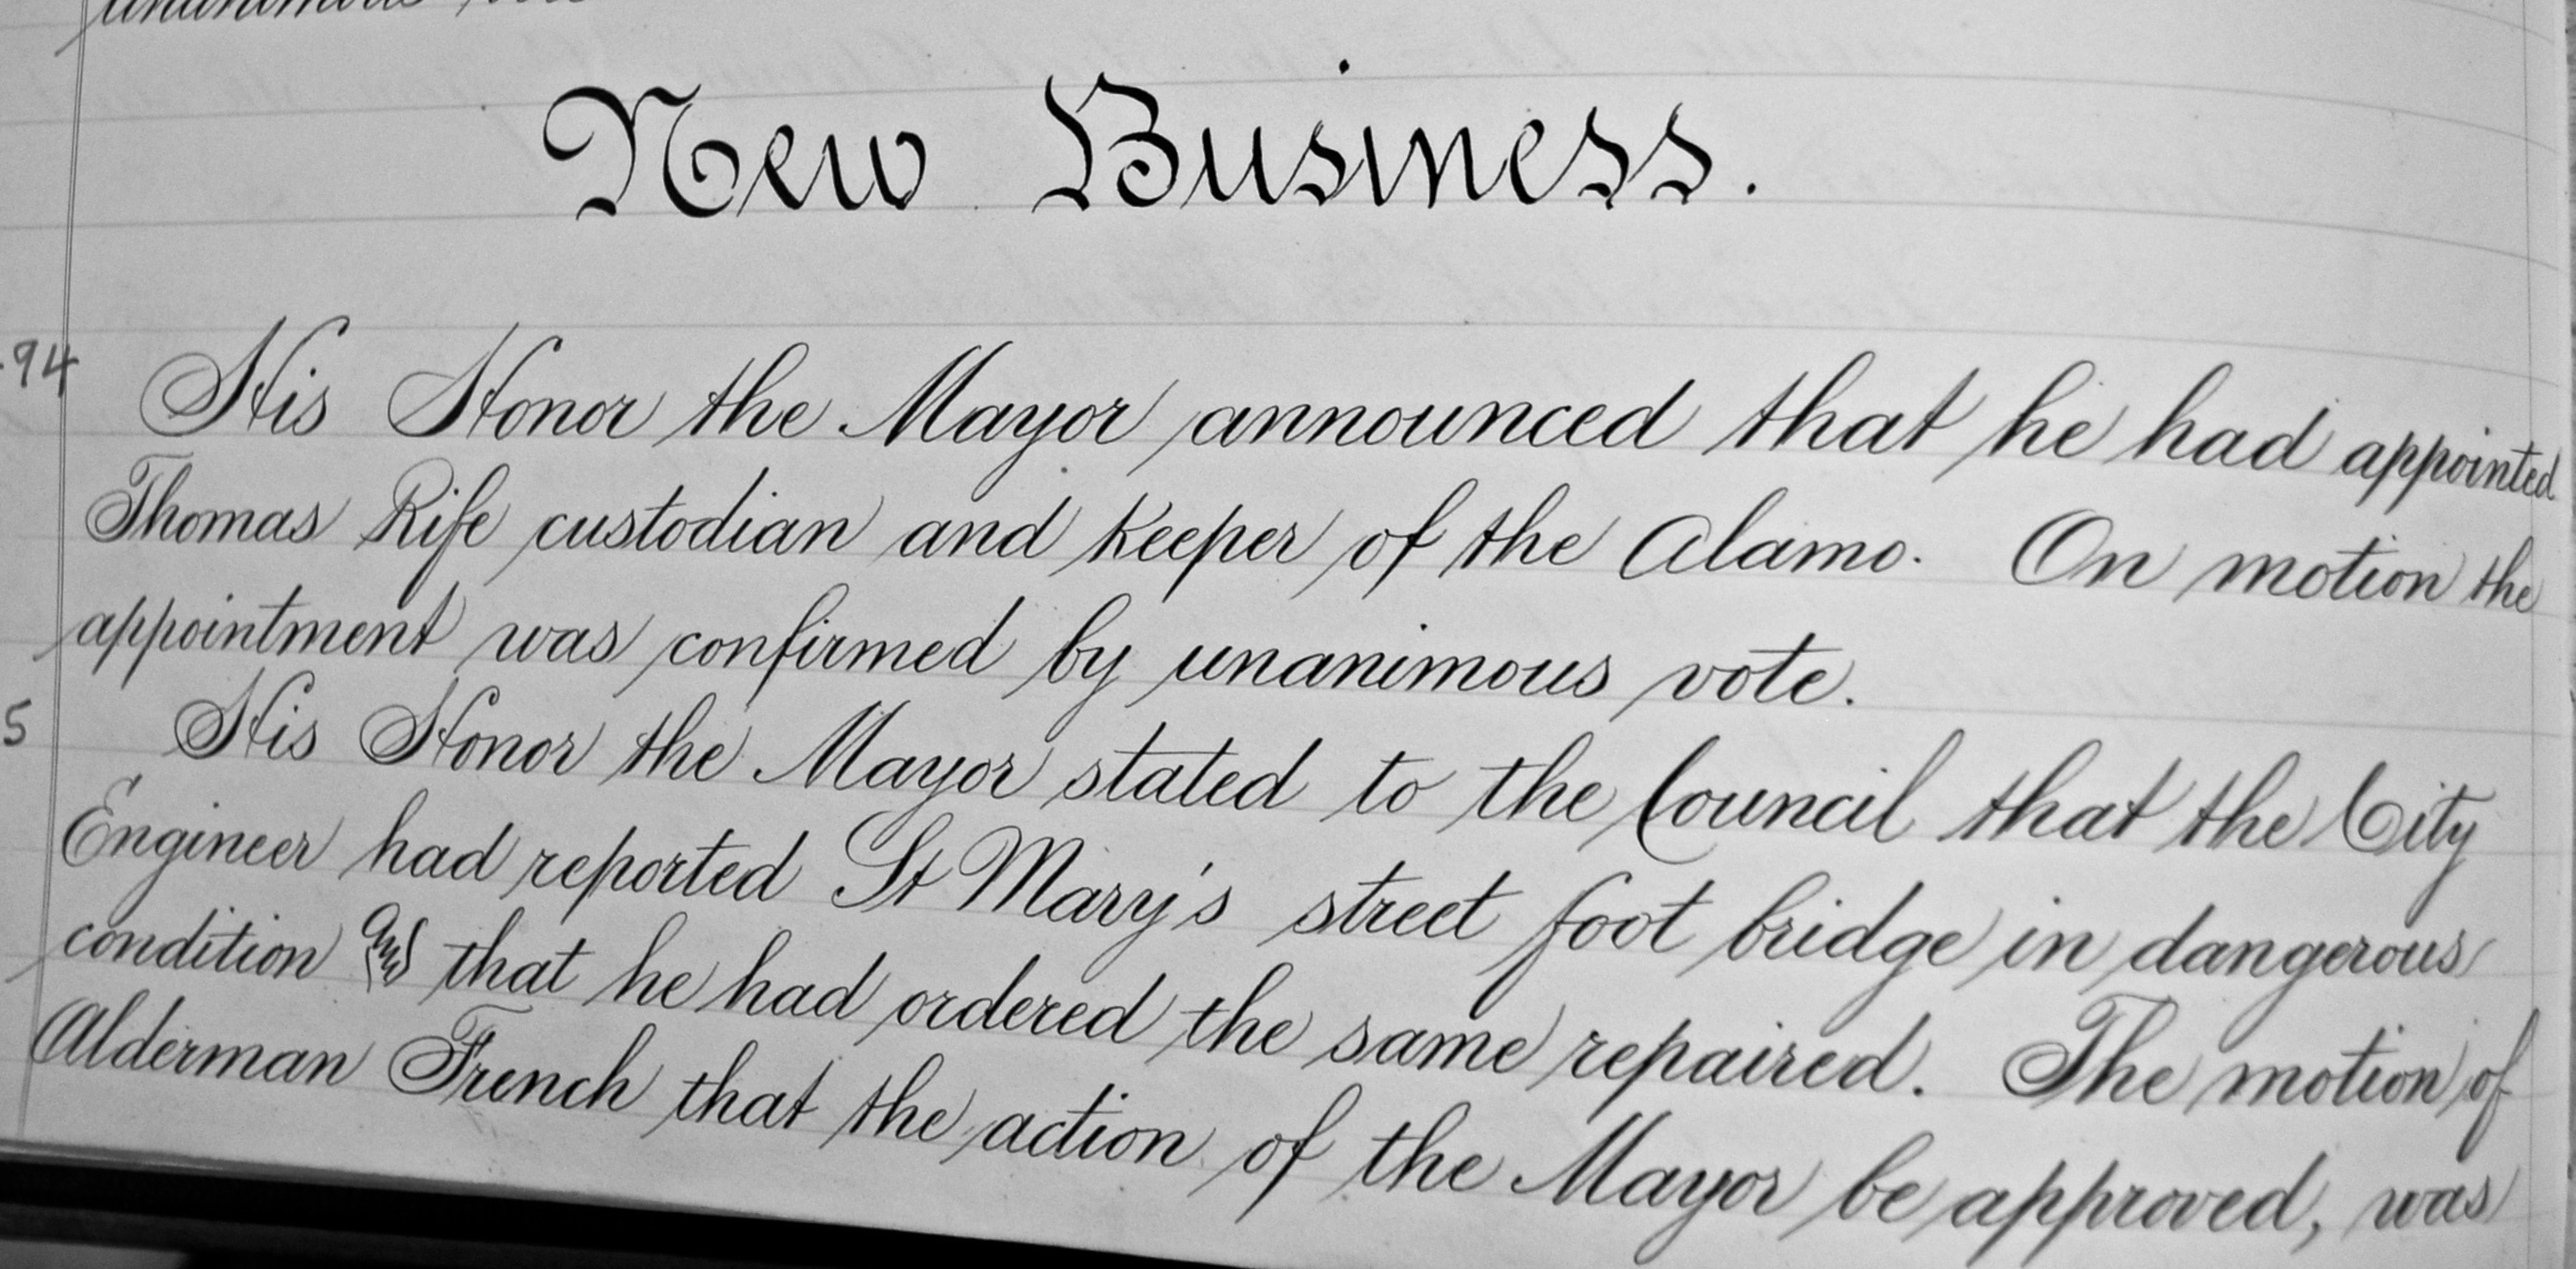 unanimous
New Business.
94 His Honor the Mayor announced that he had appointed
Thomas Rife custodian and Keeper of the Alamo. On motion the
appointment was confirmed by unanimous vote.
5 His Honor the Mayor stated to the Council that the City
Engineer had reported St Mary's street foot bridge in dangerous
condition and that he had ordered the same repaired. The motion of
Alderman French that the action of the Mayor be approved, was